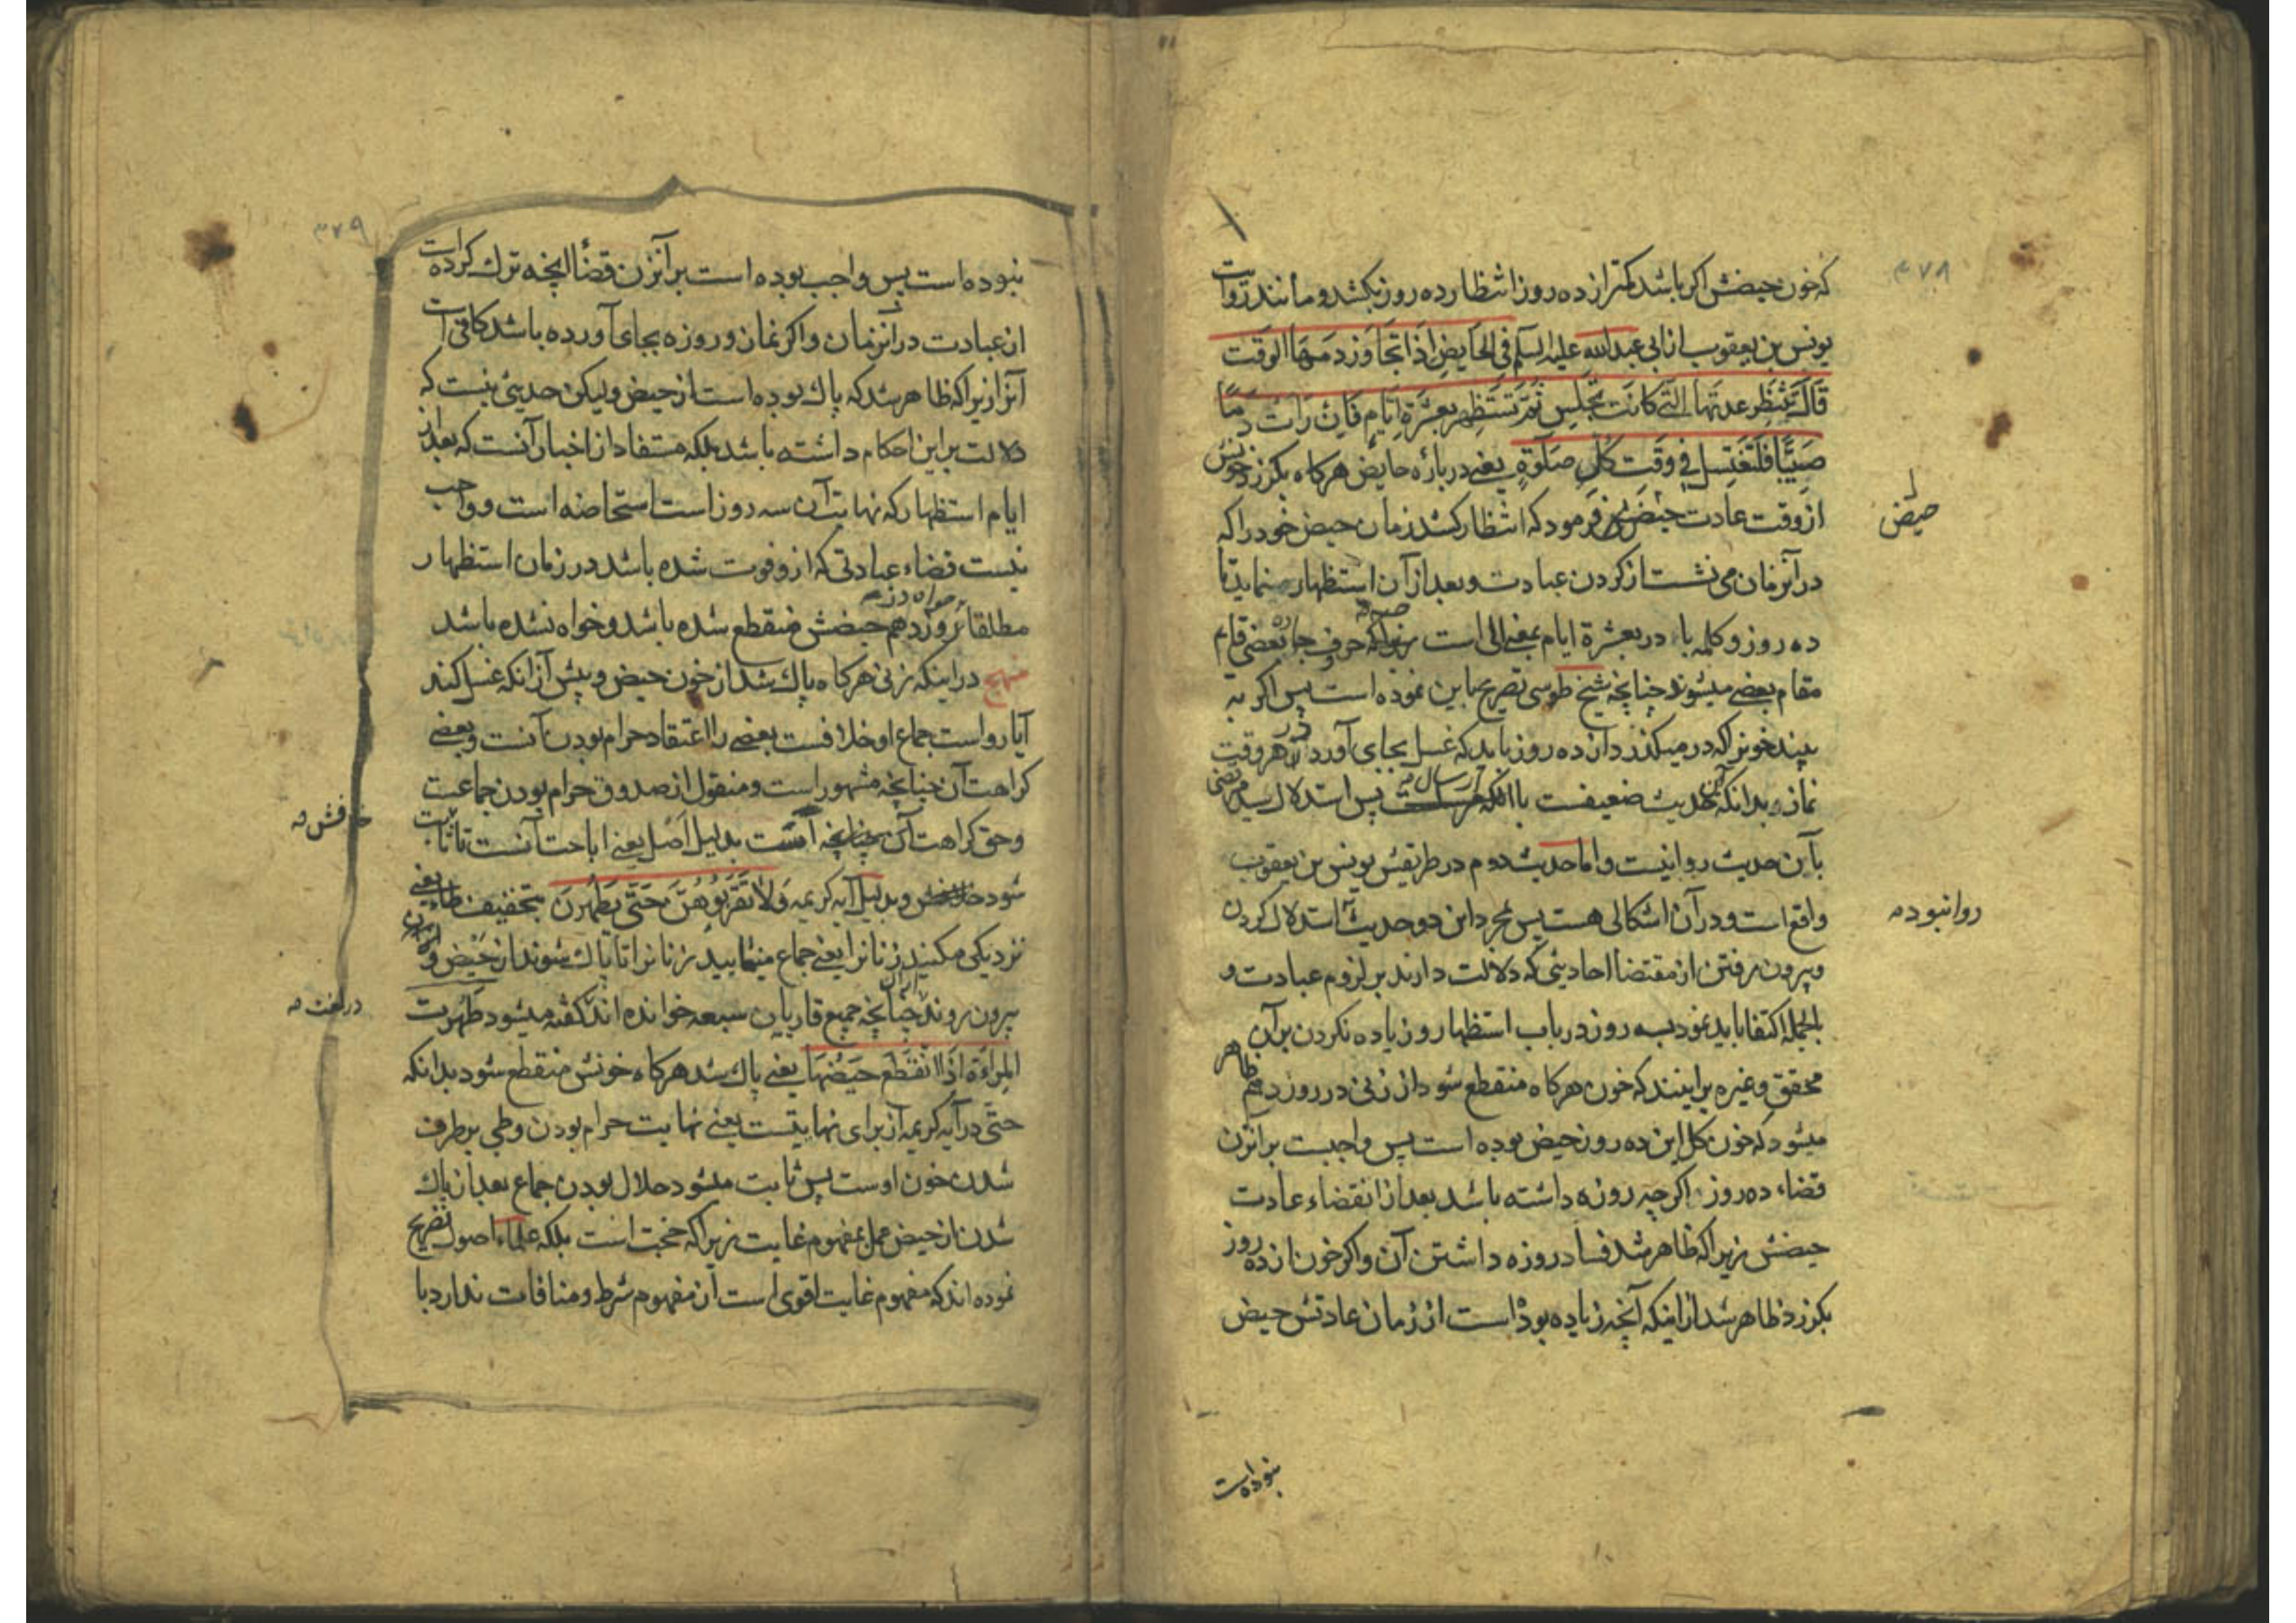 ۳۷۸
که خون حیضش اگر باشد کمتر از ده روز انتظار ده روز بکشد و مانند روایت
یونس بن یعقوب از ابی عبدالله علیه السلم فی الحایض اذا تجاوز دمها الوقت
قال تنتظر عدتها التی کانت تجلس ثم تستظهر بعشرة ایام فان رات دما
صبیبا فلتغتسل فی وقت کل صلوة یعنی درباره حایض هرکاه بکزرد خونش
از وقت عادت حیض فرمود که انتظار کشد زمان حیض خود را که
حیض
در آنزمان می نشست از کردن عبادت و بعد از آن استظهار مینماید تا
ده روز و کلمه باء در بعشرة ایام بمعنی الی است زیرا که حروف جاره بعضی قایم
مقام بعضی میشوند چنانچه شیخ طوسی تصریح باین نموده است پس اکر به
بیند خونرا که در میکذرد از ده روز باید که غسل بجای آورد در هر وقت
نماز و بدانکه این حدیث ضعیفست با ارسال پس استدلال سید مرتضی
باین حدیث روا نیست و اما حدیث دوم در طریقش یونس بن یعقوب
واقع است و در آن اشکالی هست پس بمجرد این دو حدیث استدلال کردن
روا نبوده
و بیرون رفتن از مقتضا احادیثی که دلالت دارند بر لزوم عبادت و
بالجمله اکتفا باید نمود بسه روز در باب استظهار و زیاده نکردن بر آن
محقق و غیره بر اینند که خون هرکاه منقطع شود از زنی در روز دهم ظاهر
میشود که خون کل این ده روز حیض بوده است پس واجبست بر آنزن
قضاء ده روز اکرچه روزه داشته باشد بعد از انقضاء عادت
حیضش زیرا که ظاهر شد فساد روزه داشتن آن و اکر خون از ده روز
بکزرد ظاهر شد از اینکه آنچه زیاده بوده است از زمان عادتش حیض
نبوده است
۳۷۹
نبوده است پس واجب بوده است بر آنزن قضا انچه ترک کرده است
از عبادت در آنزمان و اکر نماز و روزه بجای آورده باشد کافی است
آنرا زیرا که ظاهر شد که پاک بوده است از حیض و لیکن حدیثی نیست که
دلالت بر این احکام داشته باشد بلکه مستفاد از اخبار آنست که بعد از
ایام استظهار که نهایت آن سه روز است استحاضه است و واجب
نیست قضاء عبادتی که از و فوت شده باشد در زمان استظهار
مطلقا خواه در روز دهم حیضش منقطع شده باشد و خواه نشده باشد
منهج در اینکه زنی هرکاه پاک شد از خون حیض و پیش از آنکه غسل کند
آیا رواست جماع او خلافست بعضی را اعتقاد حرام بودن آنست و بعضی
کراهت آن چنانچه مشهور است و منقول از صدوق حرام بودن جماعت
و حق کراهت آن است بدلیل اصل یعنی اباحت آنست تا ثابت
خلافش
شود و بدلیل آیه کریمه ولا تقربوهن حتی یطهرن بتخفیف طاء یعنی
نزدیکی مکنید زنانرا یعنی جماع منمایید زنانرا تا پاک شوند از حیض و از آن
بیرون روند چنانچه جمیع قاریان سبعه خوانده اند کفته میشود طهرت
در لغت
المرءة اذا انقطع حیضها یعنی پاک شد هرکاه خونش منقطع شود بدانکه
حتی در آیه کریمه از برای نهایتست یعنی نهایت حرام بودن وطی برطرف
شدن خون اوست پس ثابت میشود حلال بودن جماع بعد از پاک
شدن از حیض عمل بمفهوم غایت زیرا که حجت است بلکه علماء اصول تصریح
نموده اند که مفهوم غایت اقوی است از مفهوم شرط و منافات ندارد با